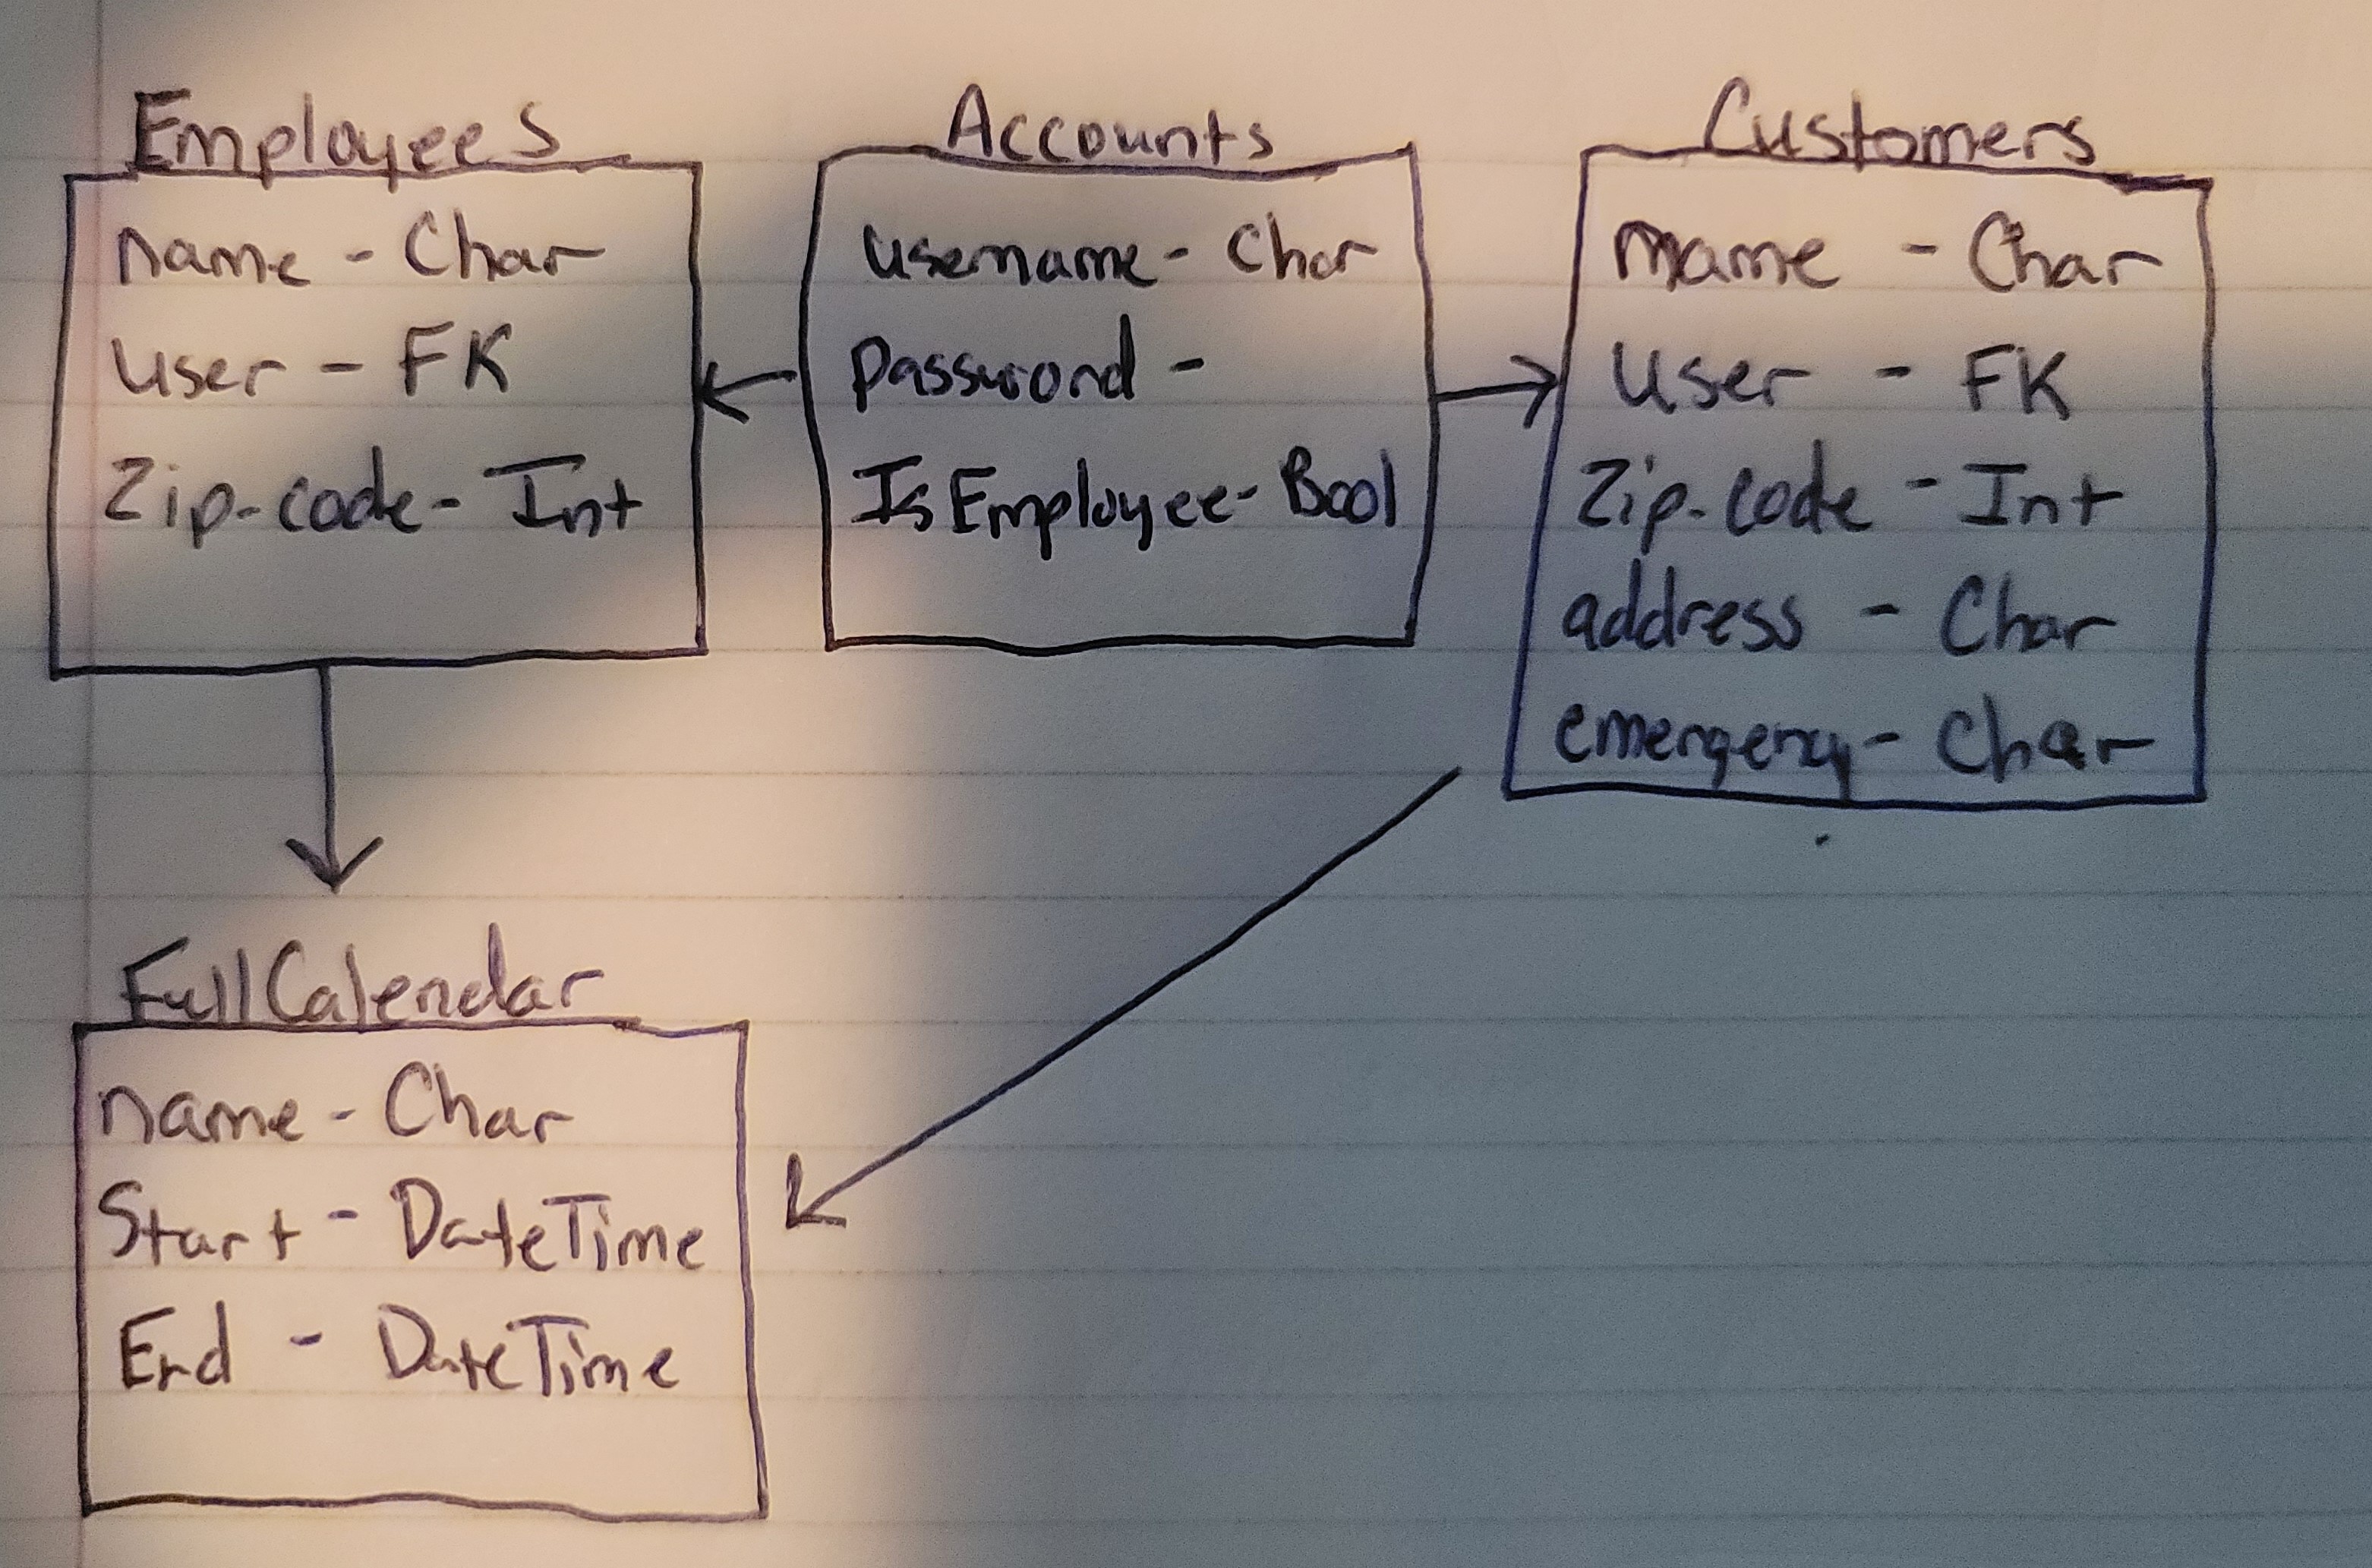 Employees
name - Char
User - FK
Zip-code - Int
Accounts
username - Char
Password -
IsEmployee - Bool
Customers
name - Char
User - FK
Zip-code - Int
address - Char
emergency - Char
FullCalendar
name - Char
Start - DateTime
End - DateTime